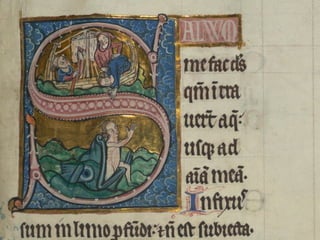 SALVVM
me fac d̄s
qm̄ ītra
uert̄ aq̄:
usq; ad
aīā meā.
Infixus
sum in limo ꝓfūdi: ⁊ n̄ est substācia.